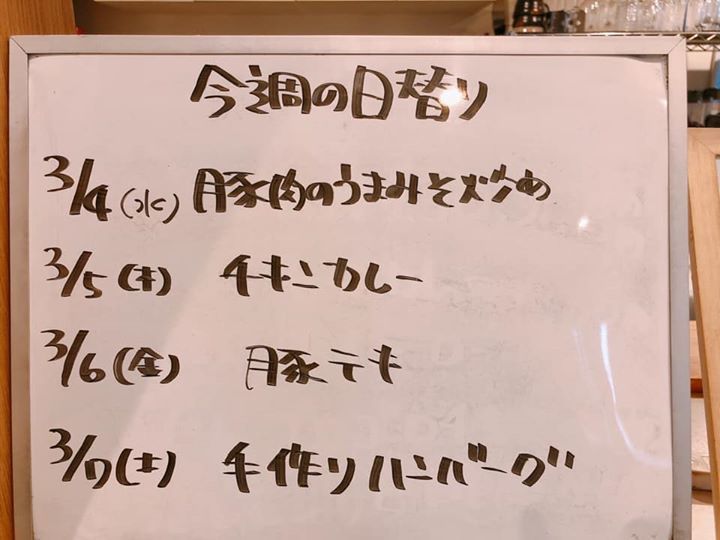 今週の日替り
3/4(水) 豚肉のうまみそ炒め
3/5(木) チキンカレー
3/6(金) 豚テキ
3/7(土) 手作りハンバーグ